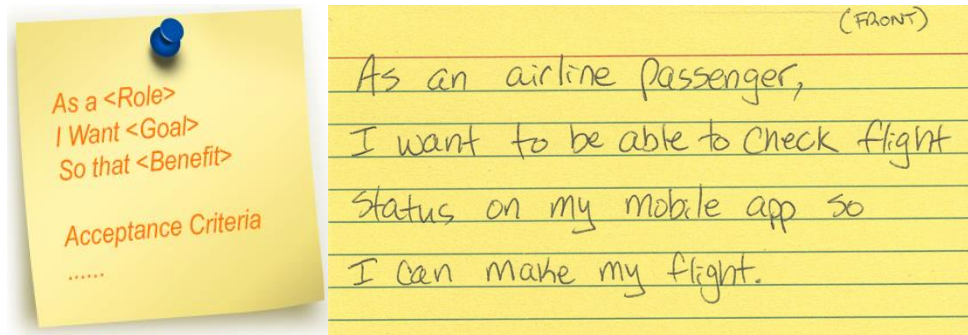 As a <Role>
I Want <Goal>
So that <Benefit>
Acceptance Criteria
......
(FRONT)
As an airline passenger,
I want to be able to check flight
status on my mobile app so
I can make my flight.